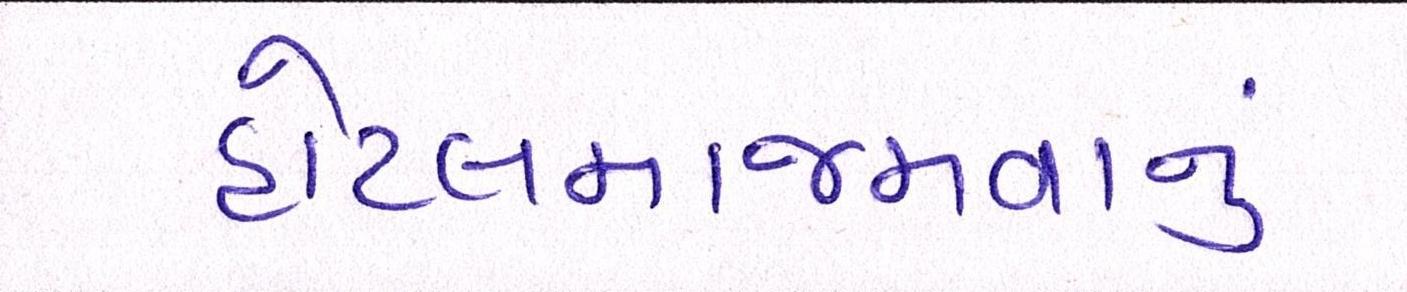 હોટલમાજમવાનું